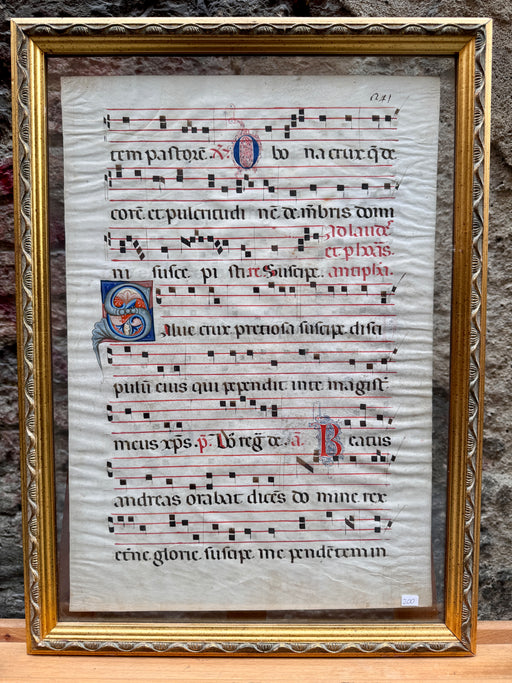 1241
tem pastorē. ℣. O bo na crux q̄ de
corē. et pulcritudi nē. de mēbris domi
ni susce. pi sti. re. Suscipe.
ad laudes
et p horas.
antipha.
Salue crux pretiosa suscipe disci
pulū eius qui pependit in te magist̄
meus xp̄s. p̄. Dō reg̃ de. a. Beatus
andreas orabat dicēs do mine rex
et̄ne glorie. suscipe me pendētem in
200